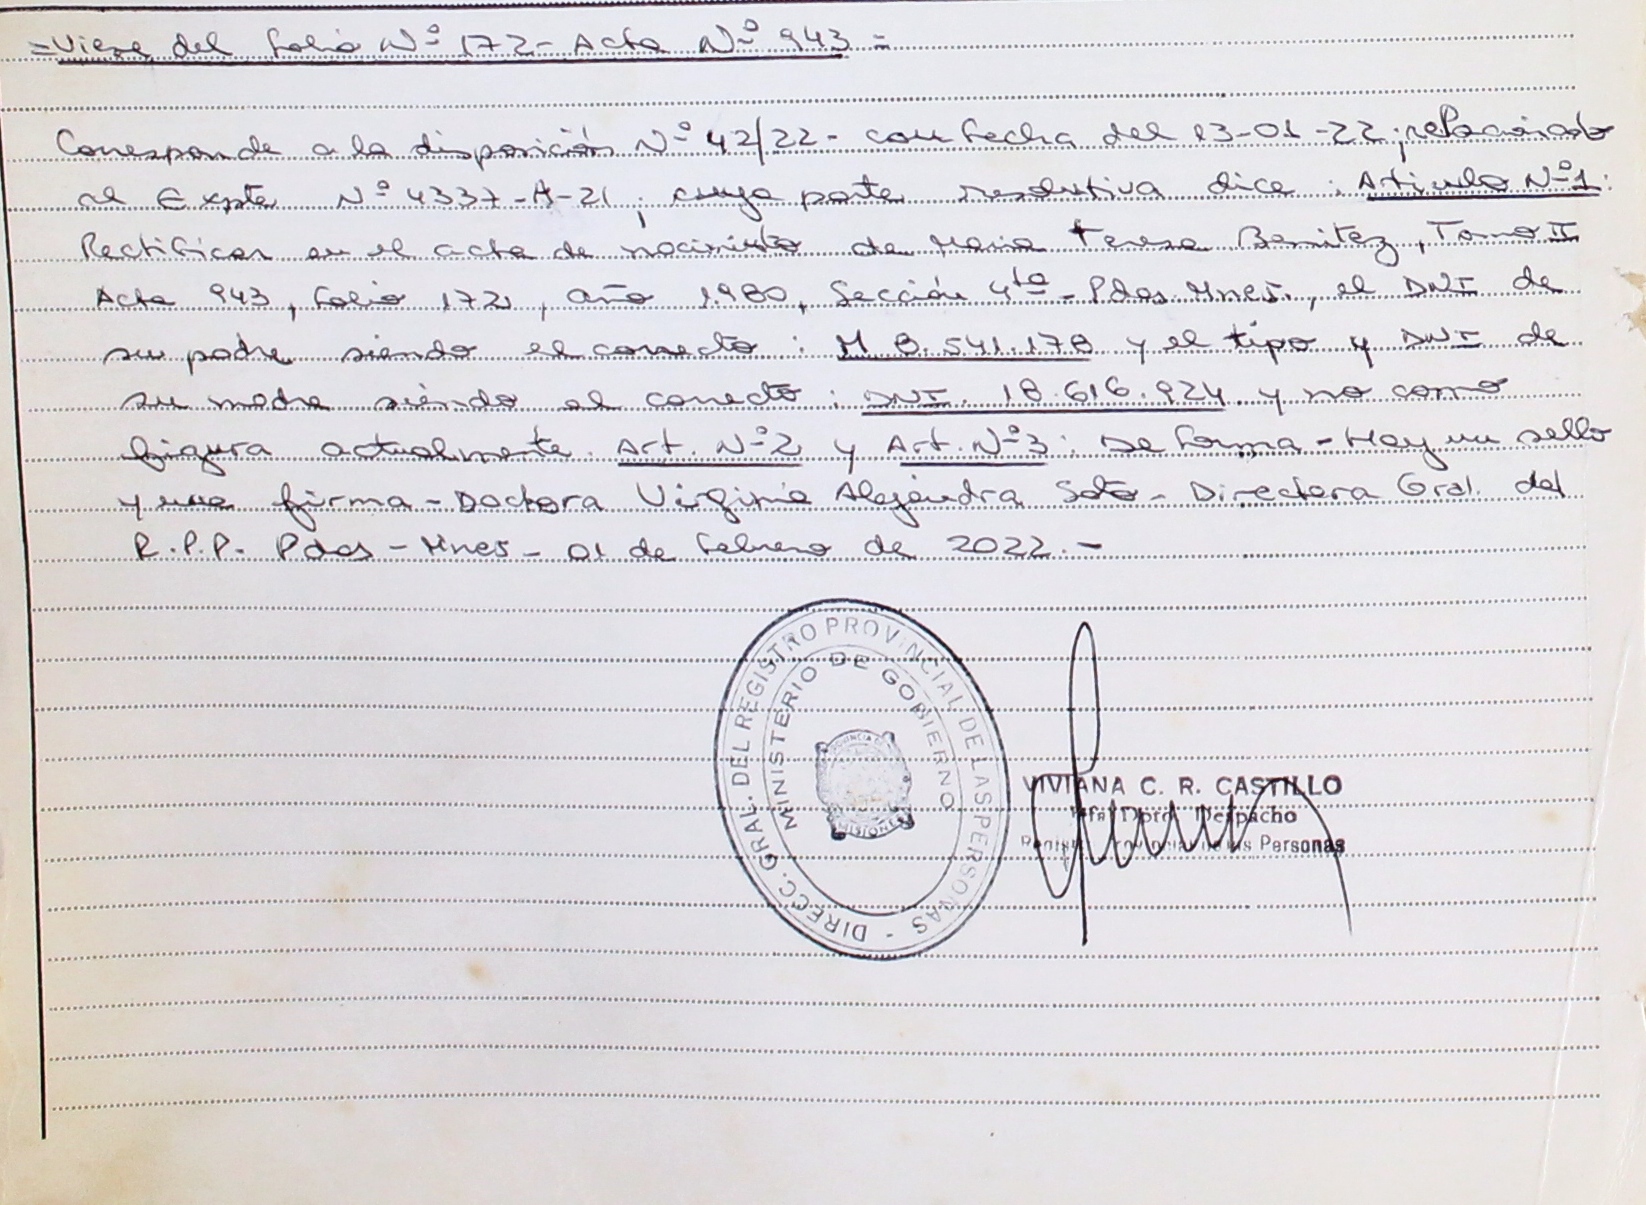 =Viene del folio Nº 172- Acta Nº 943=
Corresponde a la disposición Nº 42/22- con fecha del 13-01-22; relacionado
al Expte Nº 4337-A-21; cuya parte resolutiva dice: Articulo Nº1:
Rectificar en el acta de nacimiento de Maria Teresa Benitez, Tomo II
Acta 943, folio 172, año 1.980, Sección 4ta- Pdas. Mnes., el DNI de
su padre siendo el correcto: M 8.541.178 y el tipo y DNI de
su madre siendo el correcto: DNI. 18.616.924 y no como
figura actualmente. Art. Nº2 y Art. Nº3: De forma - Hay un sello
y una firma - Doctora Virginia Alejandra Soto - Directora Gral. del
R.P.P. Pdas - Mnes - 01 de febrero de 2022.-
DIRECC. GRAL. DEL REGISTRO PROVINCIAL DE LAS PERSONAS -
MINISTERIO DE GOBIERNO
PROVINCIA DE
MISIONES
VIVIANA C. R. CASTILLO
Dpto. Despacho
Personas